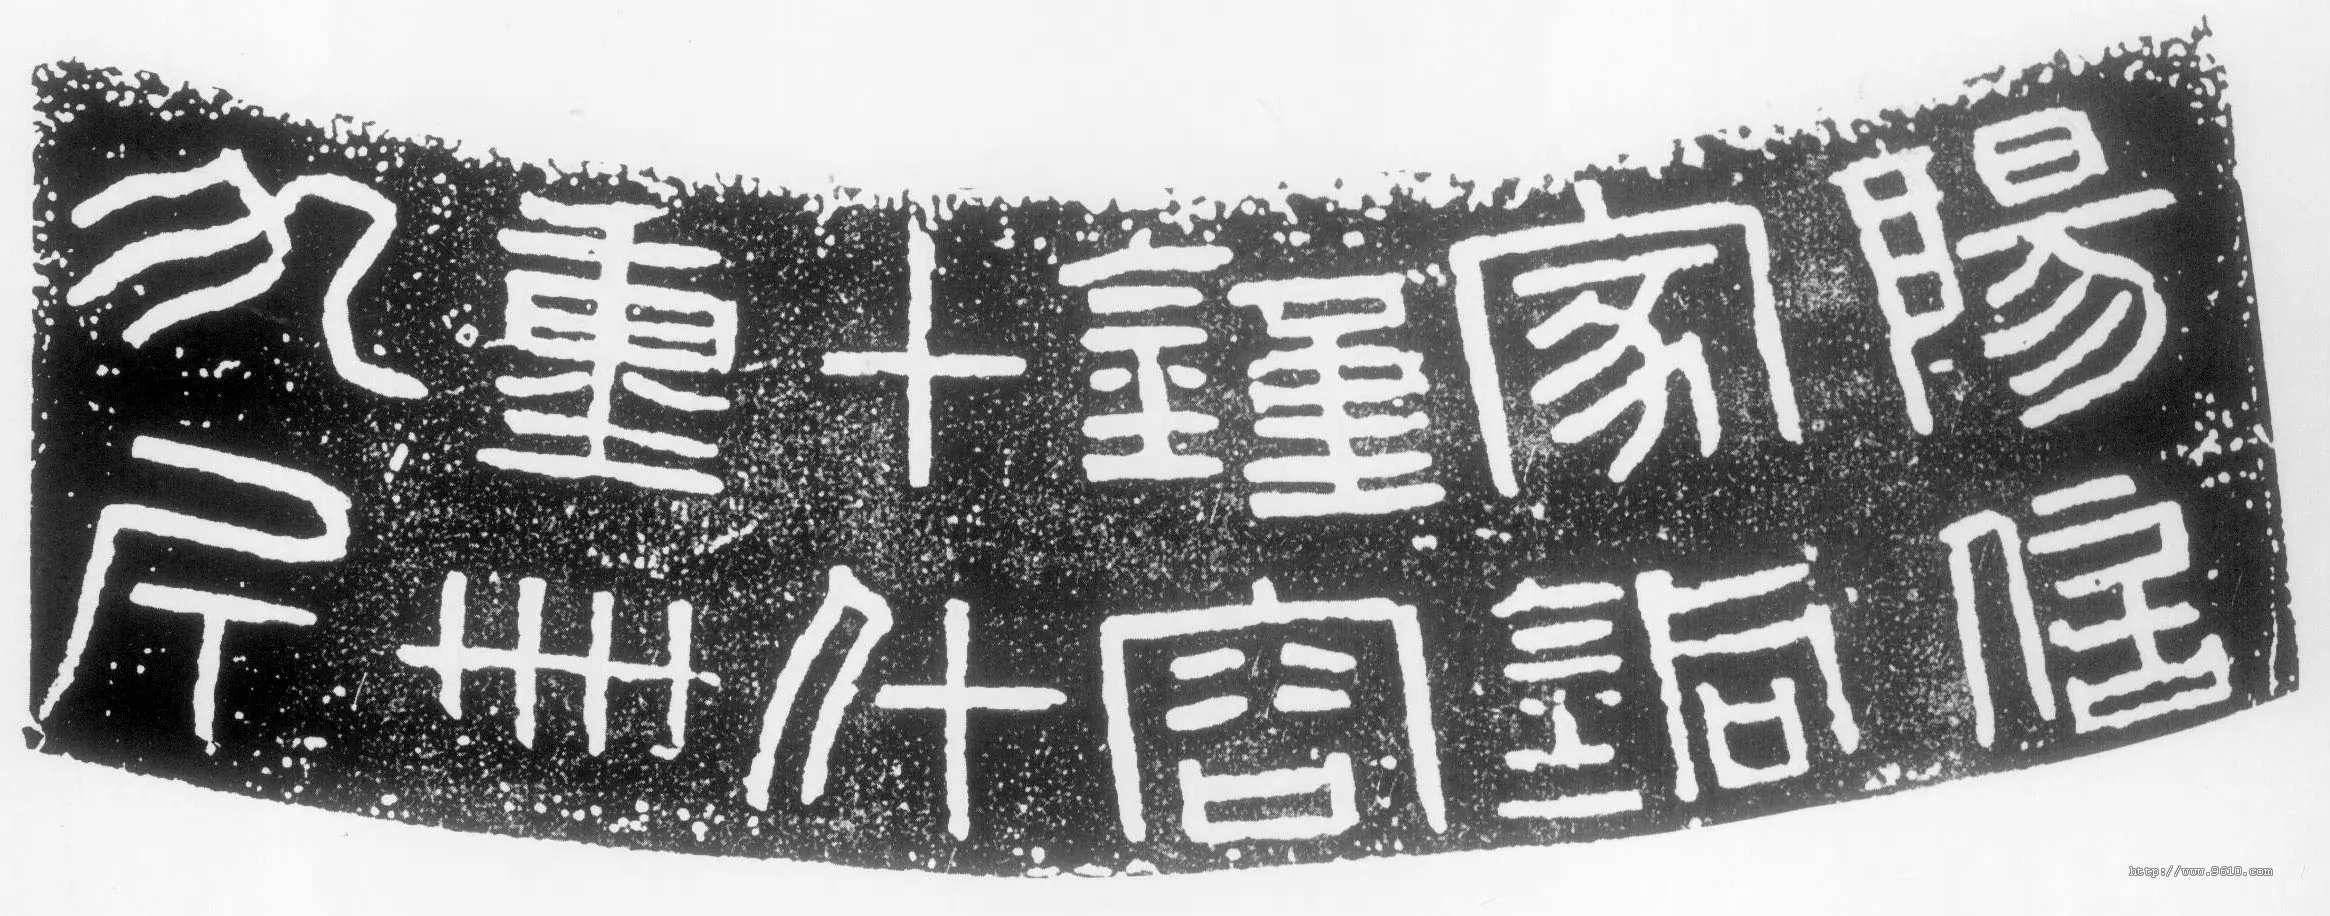 陽信
家銅
鍾容
十斗
重卌
九斤
http://www.9610.com